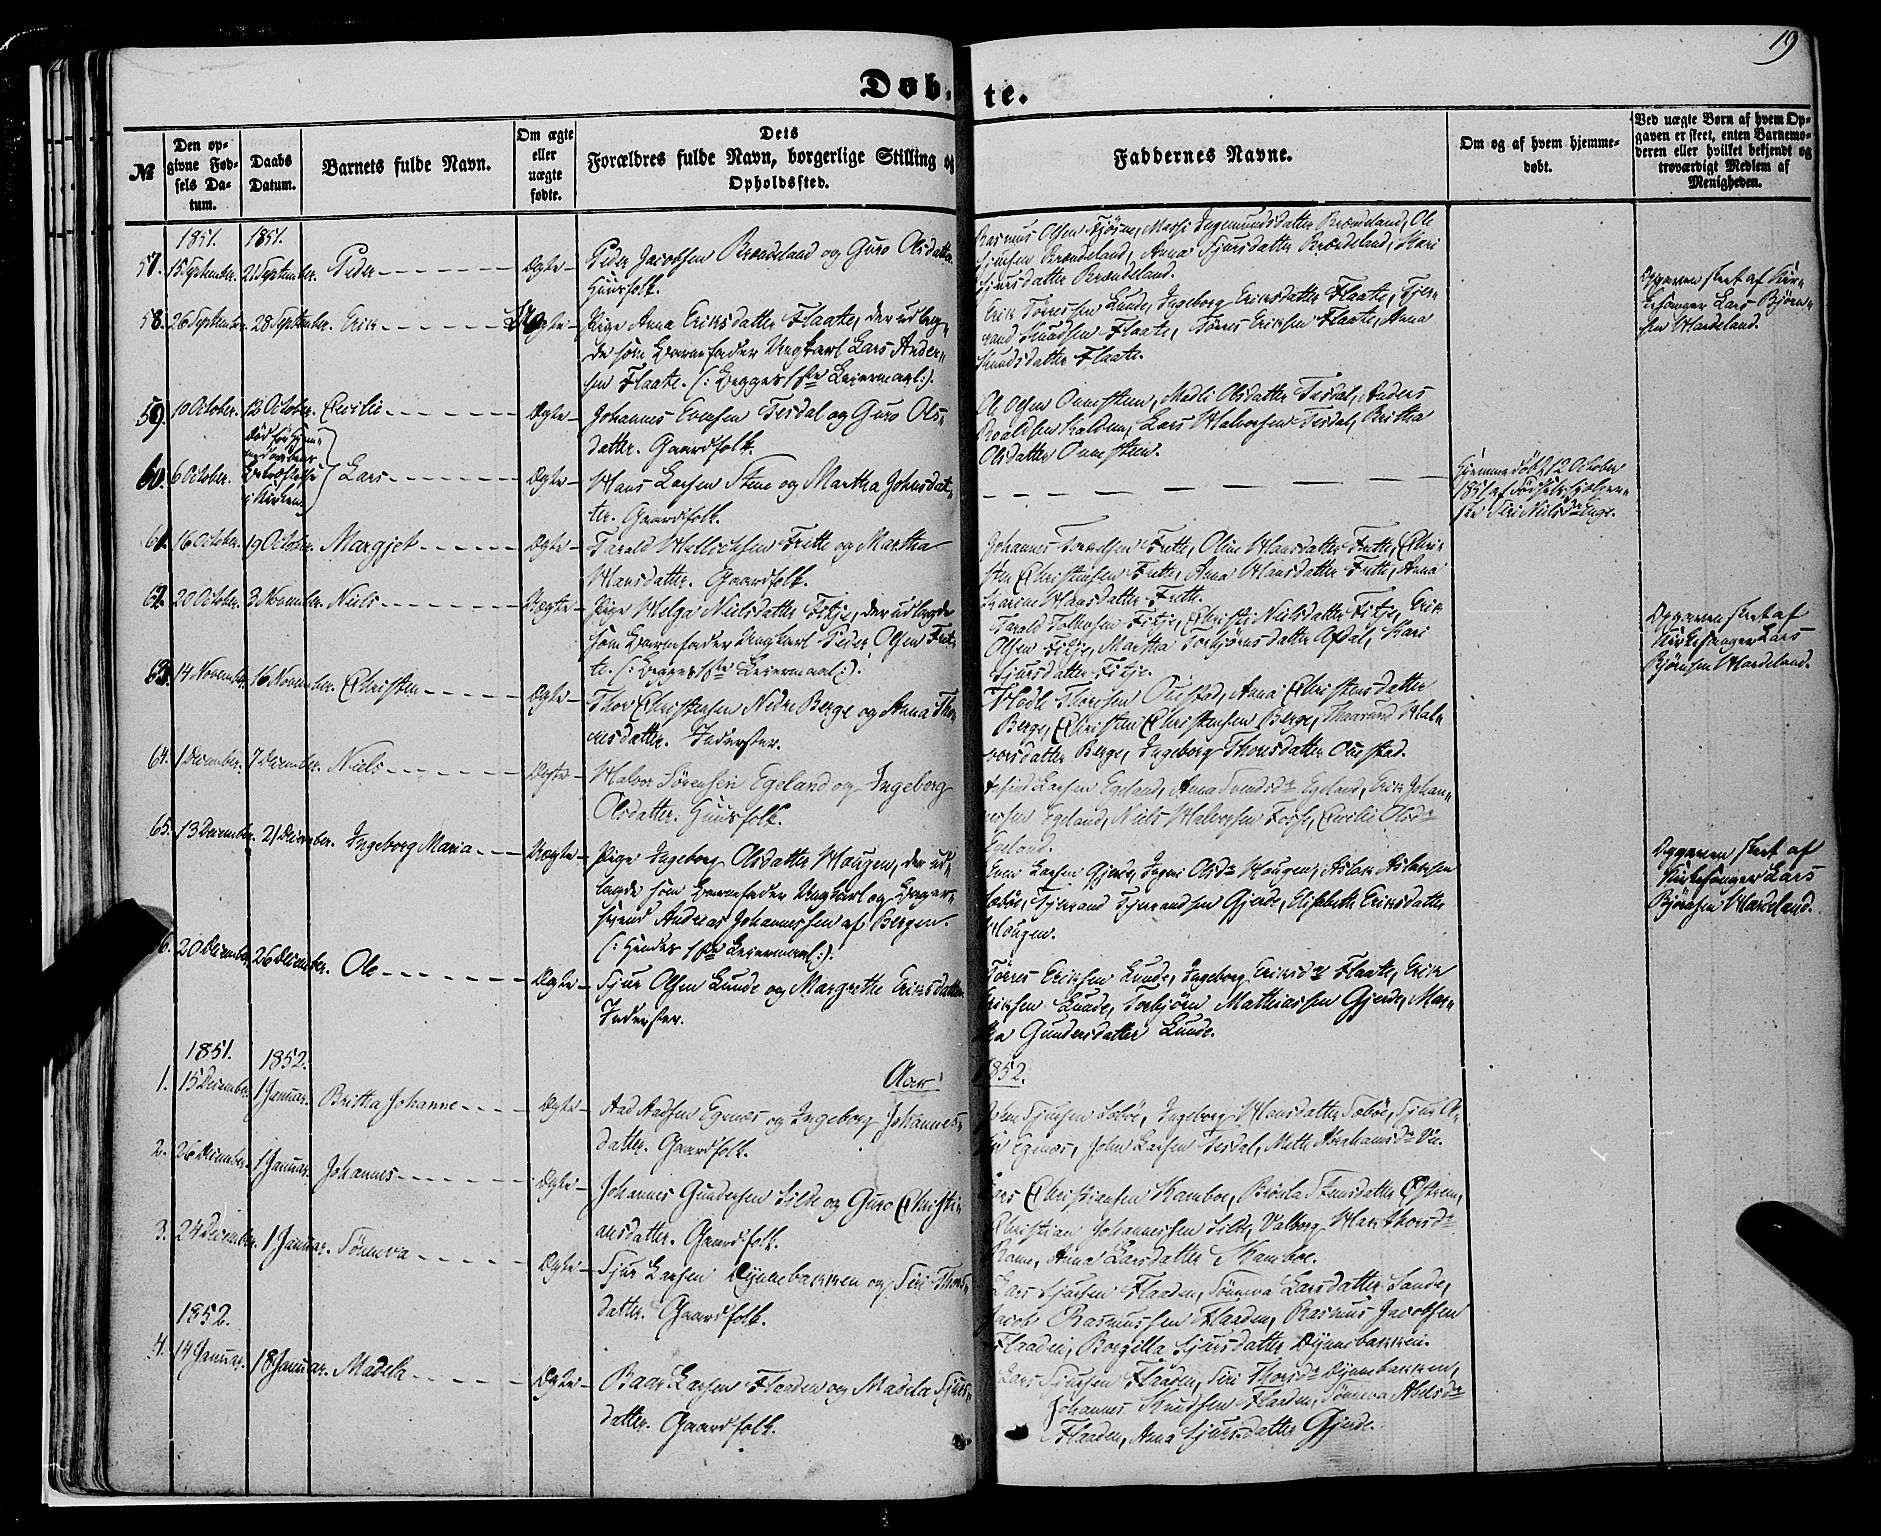 19
Døb- te.
№
Den op-
givne Fød-
sels Da-
tum.
Daabs
Datum.
Barnets fulde Navn.
Om ægte
eller
uægte
fødte.
Dets
Forældres fulde Navn, borgerlige Stilling og
Opholdssted.
Faddernes Navne.
Om og af hvem hjemme-
døbt.
Ved uægte Børn af hvem Op-
gaven er skeet, enten Barnemo-
deren eller hvilket bekjendt og
troværdigt Medlem af
Menigheden.
1851. 1851.
57. 15 September. 21 September. Peder - - - Ægte - Peder Jacobsen Brændeland og Guro Olsdatter.
Huusfolk.
Rasmus Olsen Fjøsne, Ingemundsdatter Brændeland, Ole
Sjursen Brændeland, Anna Sjursdatter Brændeland, Kari
Sjursdatter Brændeland.
58. 26 September. 28 September. Erik - - - Uægte - Pige Anna Eriksdatter Flaate, der udlag-
de som Barnefader Ungkarl Lars Ander-
sen Flaate. (: Begges 1ste Leiermaal:).
Erik Tørresen Lunde, Ingeborg Eriksdatter Flaate, Sjer-
vand Knudsen Flaate, Tørres Eriksen Flaate, Anna
Knudsdatter Flaate.
Opgaven skeet af Kir-
kesanger Lars Bjørn-
sen Mardeland.
59. 10 October. 12 October. Cecilie - - - Ægte - Johannes Evensen Tesdal og Guro Ols-
datter. Gaardfolk.
Ole Olsen Ounsteen, Olsdatter Tesdal, Anders
Roaldsen Kalven, Lars Halvorsen Tesdal, Britha
Olsdatter Ounsteen.
60. 6 October. Død før Hjem-
medaabens
Bekræftelse
i Kirken. Lars - Ægte - Hans Larsen Stene og Martha Johnsdat-
ter. Gaardfolk.
- - - - - -
Hjemmedøbt 12 October
1851 af Fødselshjælper-
ske Siri Nielsdr Enge.
61. 16 October. 19 October. Margjet - - - Ægte - Tarald Frette og Martha
Hansdatter. Gaardfolk.
Johannes Frette, Oline Hansdatter Frette, Chri-
sten Christensen Frette, Anna Hansdatter Frette, Anna
Karine Hansdatter Frette.
62. 20 October. 3 November. Niels - - - Uægte - Pige Helga Nielsdatter Fitje, der udlagde
som Barnefader Ungkarl Peder Olsen Fret-
te. (: Begges 1ste Leiermaal:).
Tarald Fitje, Christi Nielsdatter Fitje, Erik
Olsen Fitje, Martha Torbjørnsdatter Ofsdal, Kari
Sjursdatter Fitje.
Opgaven skeet af
Kirkesanger Lars
Bjørnsen Mardeland.
63. 14 November. 16 November. Christen - - - Ægte - Thor Christensen Nedre Berge og Anna Tho-
resdatter. Inderster.
Thoresen Ouestad, Anna Christensdatter
Berge, Christen Christensen Berge, Hal-
vorsdatter Berge, Ingeborg Thorsdatter Ouestad.
64. 1 December. 7 December. Niels - - - Ægte - Halvor Sørensen Egeland og Ingeborg
Olsdatter. Huusfolk.
Larsen Egeland, Anna Svendsdr Egeland, Erik Johan-
nessen Egeland, Niels Halvorsen Fosse, Cecilie Olsdr
Egeland.
65. 13 December. 21 December. Ingeborg Maria - - Uægte - Pige Ingeborg Olsdatter Hougen, der ud-
lagde som Barnefader Ungkarl og Bager-
svend Andreas Johannessen af Bergen.
(: Hendes 1ste Leiermaal:).
Even Larsen Gjerde, Olsdr Hougen, Aslak Aslaksen
Søbøe, Sjervand Sjervandsen Gjerde, Elisabeth Eriksdatter
Hougen.
Opgaven skeet af
Kirkesanger Lars
Bjørnsen Mardeland.
6. 20 December. 26 December. Ole - - - Ægte - Sjur Olsen Lunde og Margrethe Eriksdatter.
Inderster.
Tørres Eriksen Lunde, Ingeborg Eriksdr Flaate, Erik
Eriksen Lunde, Torbjørn Mathiassen Gjerde, Mar-
tha Gundersdatter Lunde.
1851. 1852. Aar 1852.
1. 15 December. 1 Januar. Britha Johanne - - - Ægte - Aad Aadsen Egenes og Ingeborg Johannes-
datter. Gaardfolk.
John Sjursen Søbøe, Ingeborg Hansdatter Søbøe, Sjur
Egenes, John Larsen Tesdal, Mette Abrahamsdr
2. 26 December. 1 Januar. Johannes - - - Ægte - Johannes Gundersen Silde og Guro Christi-
ansdatter. Gaardfolk.
Lars Christiansen Kamboe, Stensdatter Østrem,
Christian Johannessen Silde, Valborg
Anna Larsdatter Kamboe.
3. 24 December. 1 Januar. Sønneva - - - Ægte - Sjur Larsen Dynnebakken og Siri Thors-
datter. Gaardfolk.
Lars Sjursen Flaaden, Sønneva Larsdatter Sande,
Jacob Rasmussen Flaaden, Rasmus Jacobsen
Flaaden, Borgilla Sjursdatter Dynnebakken.
1852.
4. 14 Januar. 18 Januar. Madela - - - Ægte - Baar Larsen Flaaden og Madela Sjurs-
datter. Gaardfolk.
Lars Sjursen Flaaden, Siri Thorsdr Dynnebakken,
Johannes Knudsen Flaaden, Sønneva
Flaaden, Anna Sjursdatter Gjerde.